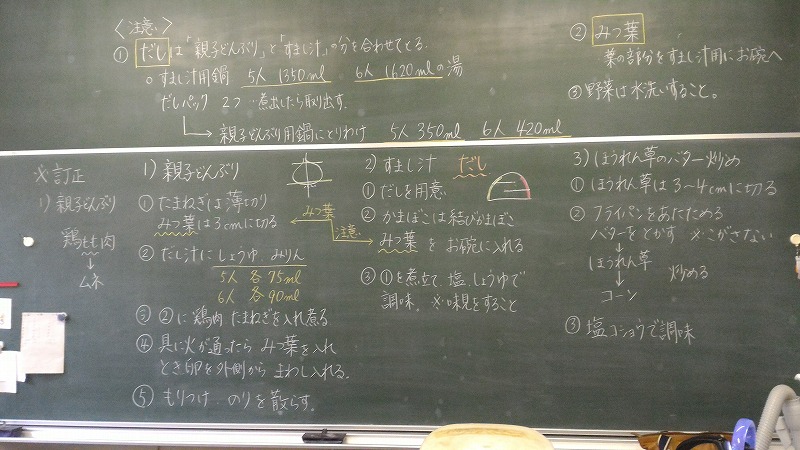 〈注意〉
① だしは「親子どんぶり」と「すまし汁」の分を合わせてとる。
○すまし汁用鍋 5人 1350ml 6人 1620mlの湯
だしパック 2つ…煮出したら取出す。
→親子どんぶり用鍋にとりわけ 5人 350ml 6人 420ml
② みつ葉
葉の部分をすまし汁用にお碗へ
③野菜は水洗いすること。
※訂正
1) 親子どんぶり
鶏もも肉
↓
ムネ
1) 親子どんぶり
① たまねぎは薄切り
みつ葉は3cmに切る
② だし汁にしょうゆ みりん
5人 各75ml
6人 各90ml
③ ②に鶏肉 たまねぎを入れ煮る
④ 具に火が通ったら みつ葉を入れ
とき卵を外側から まわし入れる。
⑤ もりつけ のりを散らす。
2) すまし汁 だし
① だしを用意
② かまぼこは結びかまぼこ
みつ葉 注意
みつ葉をお碗に入れる
③ ①を煮立て、塩、しょうゆで
調味。※味見をすること
3) ほうれん草のバター炒め
① ほうれん草は3〜4cmに切る
② フライパンをあたためる
バターをとかす ※こがさない
↓
ほうれん草
↓ 炒める
コーン
③ 塩コショウで調味